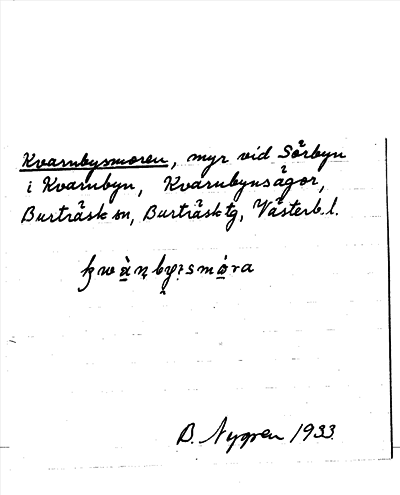 Kvarnbysmoren, myr vid Sörbyn
i Kvarnbyn, Kvarnbynsägor,
Burträsk sn, Burträsk tg, Västerb. l.
B. Nygren 1933.